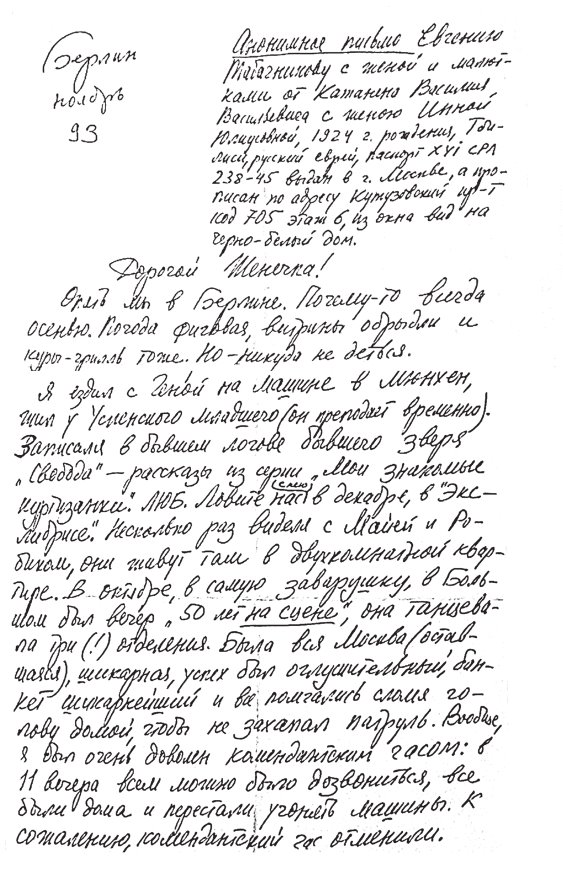 Берлин
ноябрь
93
Анонимное письмо Евгению
Табачникову с женой и малют-
ками от Катаняна Василия
Васильевича с женою Инной
Юлиусовной, 1924 г. рождения, Тби-
лиси, русский еврей, паспорт XVI СРЛ
238-45 выдан в г. Москве, а про-
писан по адресу Кутузовский пр-т
код 705 этаж 6, из окна вид на
черно-белый дом.
Дорогой Женечка!
Опять мы в Берлине. Почему-то всегда
осенью. Погода фиговая, витрины обрыдли и
куры-грилль тоже. Но-никуда не деться.
Я ездил с Геной на машине в Мюнхен,
жил у Успенского младшего (он преподает временно).
Записался в бывшем логове бывшего зверя
„Свобода" — рассказы из серии „Мои знакомые
куртизанки". ЛЮБ. Ловите нас (слю) в декабре, в "Экс-
либрисе". Несколько раз виделся с Майей и Ро-
биком, они живут там в двухкомнатной квар-
тире. В октябре, в самую заварушку, в Боль-
шом был вечер „50 лет на сцене", она танцева-
ла три (!) отделения. Была вся Москва (остав-
шаяся), шикарная, успех был оглушительный, бан-
кет шикарнейший и все помчались сломя го-
лову домой, чтобы не захапал патруль. Вообще,
я был очень доволен комендантским часом: в
11 вечера всем можно было дозвониться, все
были дома и перестали угонять машины. К
сожалению, комендантский час отменили.